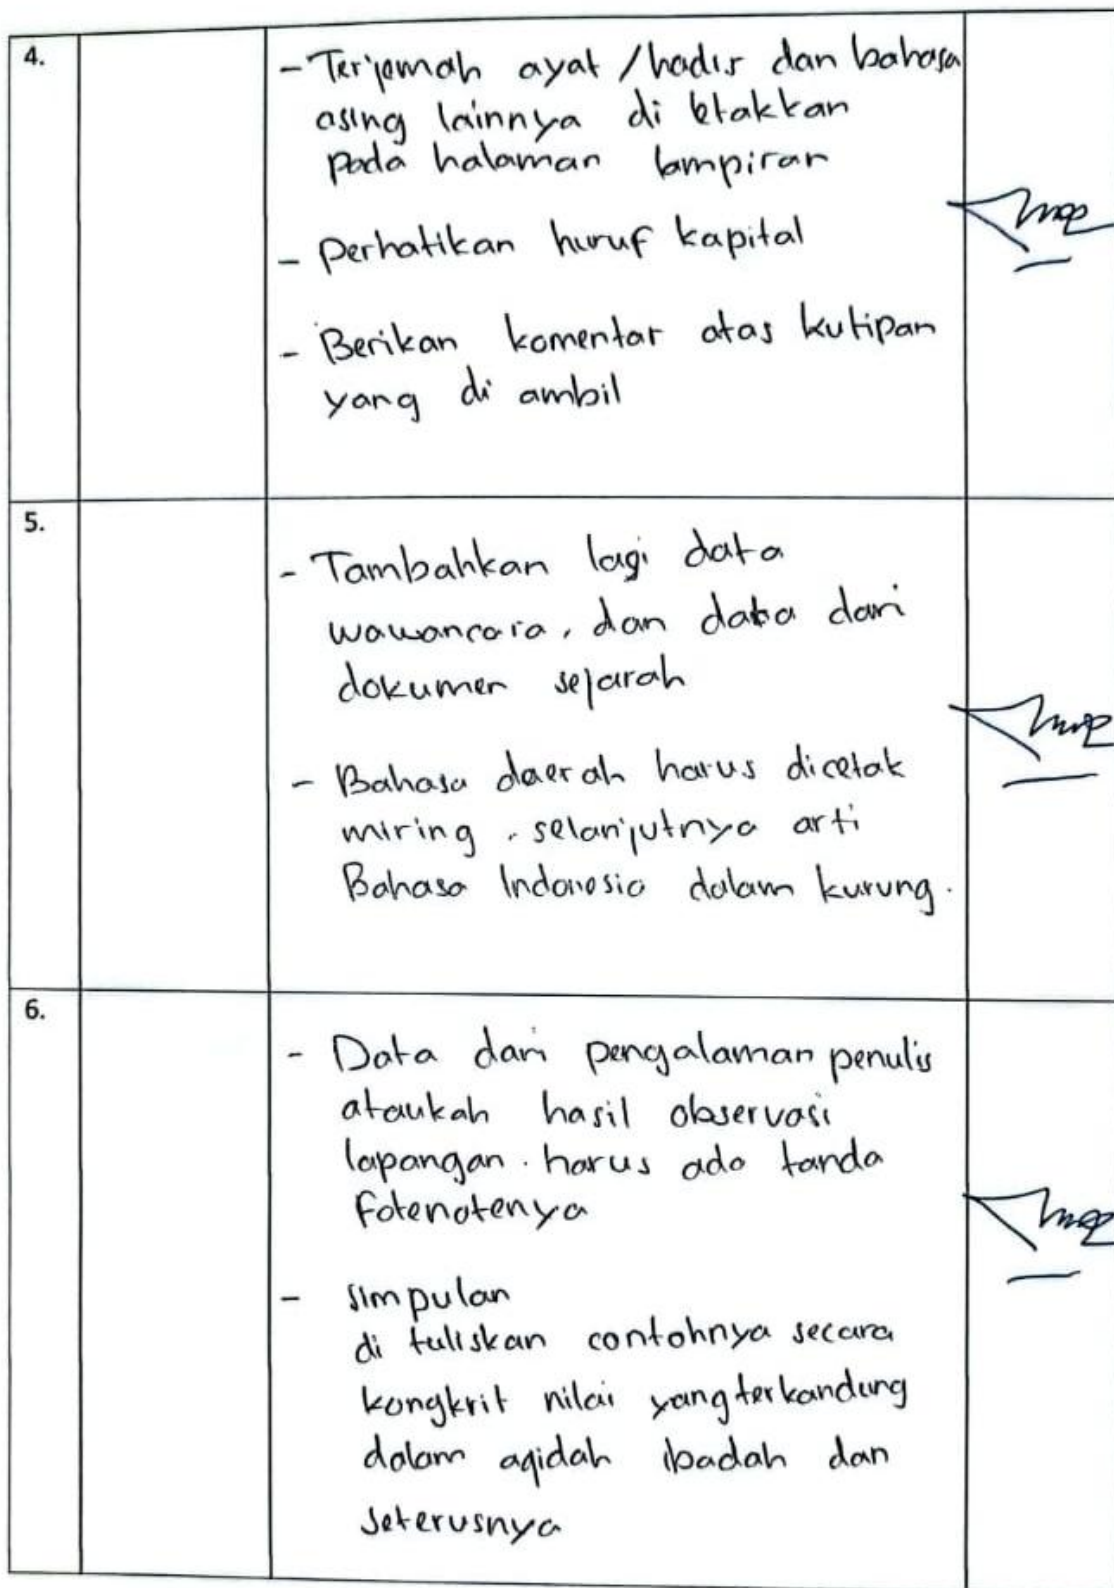 4.
- Terjemah ayat / hadis dan bahasa
asing lainnya di letakkan
pada halaman lampiran
- Perhatikan huruf kapital
- Berikan komentar atas kutipan
yang di ambil
5.
- Tambahkan lagi data
wawancara, dan data dari
dokumen sejarah
- Bahasa daerah harus dicetak
miring. selanjutnya arti
Bahasa Indonesia dalam kurung.
6.
- Data dari pengalaman penulis
ataukah hasil observasi
lapangan. harus ada tanda
fotenotenya
- simpulan
di tuliskan contohnya secara
kongkrit nilai yang terkandung
dalam aqidah ibadah dan
seterusnya